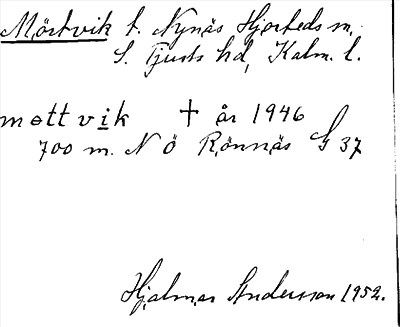 Mörtvik t. Nynäs Hjorteds sn,
S. Tjusts hd, Kalm. l.
mɵttvik † år 1946
700 m. N Ö Rönnäs G 37
Hjalmar Andersson 1952.